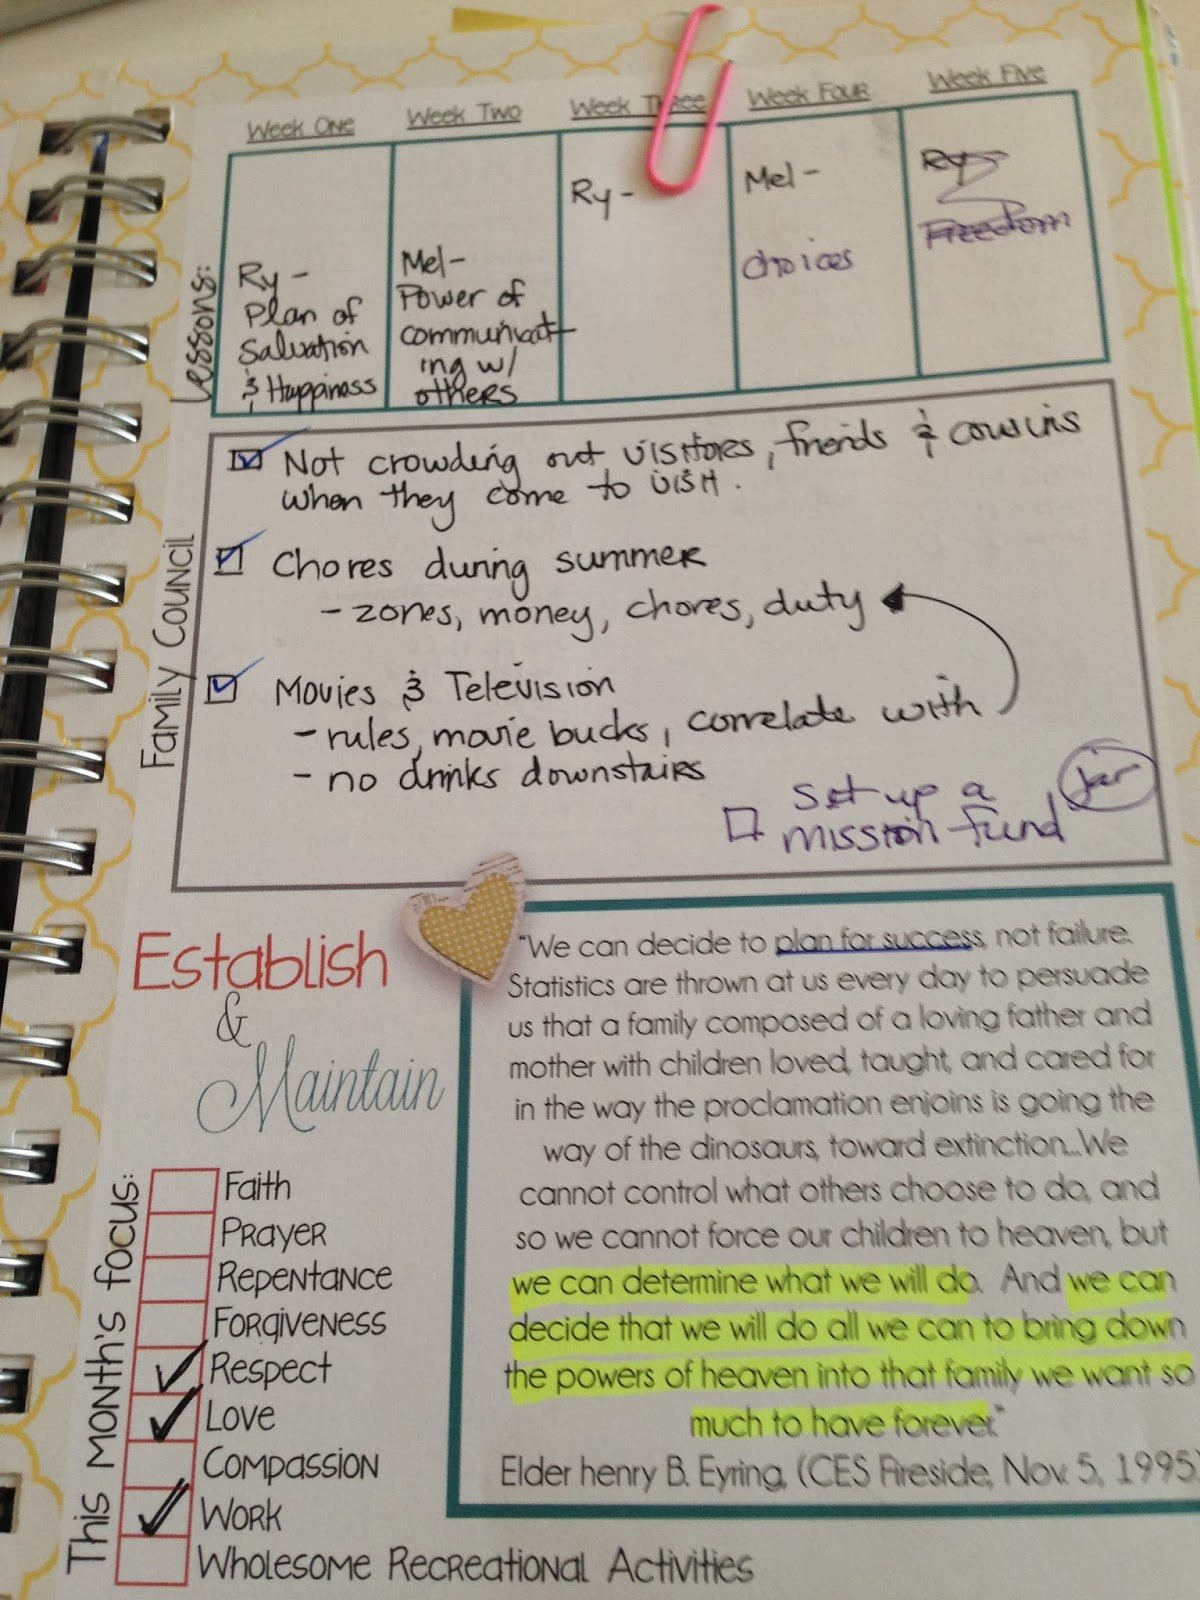 Week One
Week Two
Week Three
Week Four
Week Five
Lessons:
Ry -
Plan of
Salvation
& Happiness
Mel-
Power of
communicat-
ing w/
others
Ry -
Mel -
choices
Ry
Freedom
Family Council
Not crowding out visitores, friends & cousins
when they come to visit.
Chores during summer
- zones, money, chores, duty
Movies & Television
- rules, movie bucks, correlate with
- no drinks downstairs
Set up a
mission fund
jar
Establish
&
Maintain
This month's focus:
Faith
Prayer
Repentance
Forgiveness
Respect
Love
Compassion
Work
Wholesome Recreational Activities
"We can decide to plan for success, not failure.
Statistics are thrown at us every day to persuade
us that a family composed of a loving father and
mother with children loved, taught, and cared for
in the way the proclamation enjoins is going the
way of the dinosaurs, toward extinction...We
cannot control what others choose to do, and
so we cannot force our children to heaven, but
we can determine what we will do. And we can
decide that we will do all we can to bring down
the powers of heaven into that family we want so
much to have forever."
Elder henry B. Eyring, (CES Fireside, Nov. 5, 1995)